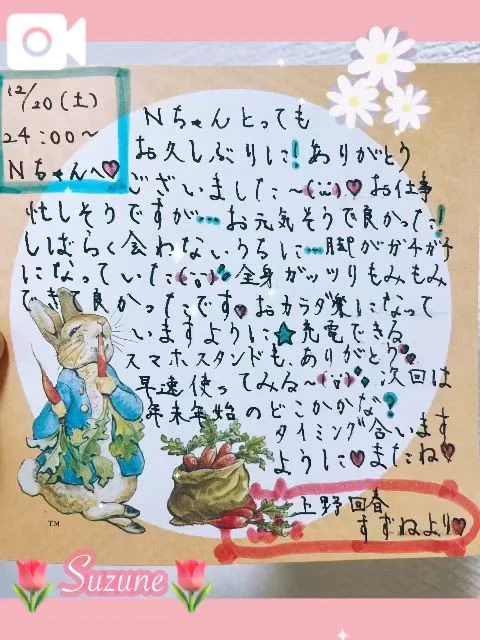 12/20(土)
24:00~
Nちゃんへ
Nちゃんとっても
お久しぶりに!ありがとう
ございました~(¨)お仕事
忙しそうですが…お元気そうで良かった!
しばらく会わないうちに…脚がガチガチ
になっていた(;;)全身ガッツリもみもみ
できて良かったです♥おカラダ楽になって
いますように★充電できる
スマホスタンドも、ありがとう♥
早速使ってみる~(¨)次回は
年末年始のどこかかな?
タイミング合います
ように♥またね♥
上野回春
すずねより♥
TM
Suzune